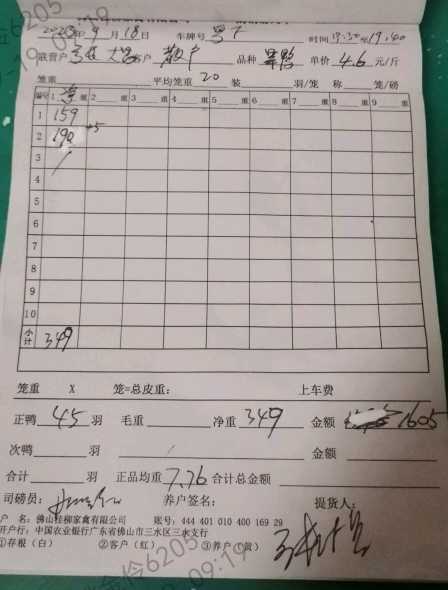 2023年9月18日 车牌号 粤T 时间 19:30至19:40
联营户 散户 品种 单价 4.6 元/斤
笼重 平均笼重 20 装 羽/笼 称 笼/磅
编号 1 重 2 重 3 重 4 重 5 重 6 重 7 重 8 重 9 重
1 159
2 190 +5
3
4
5
6
7
8
9
10
小计 349
笼重 X 笼=总皮重: 上车费
正鸭 45 羽 毛重 净重 349 金额 1605
次鸭 羽 金额
合计 羽 正品均重 7.76 合计总金额
司磅员: 养户签名: 提货人:
户 名: 佛山桂柳家禽有限公司 账号: 444 401 010 400 169 29
开户行: 中国农业银行广东省佛山市三水区三水支行
①存根（白） ②客户（红） ③养户（黄）